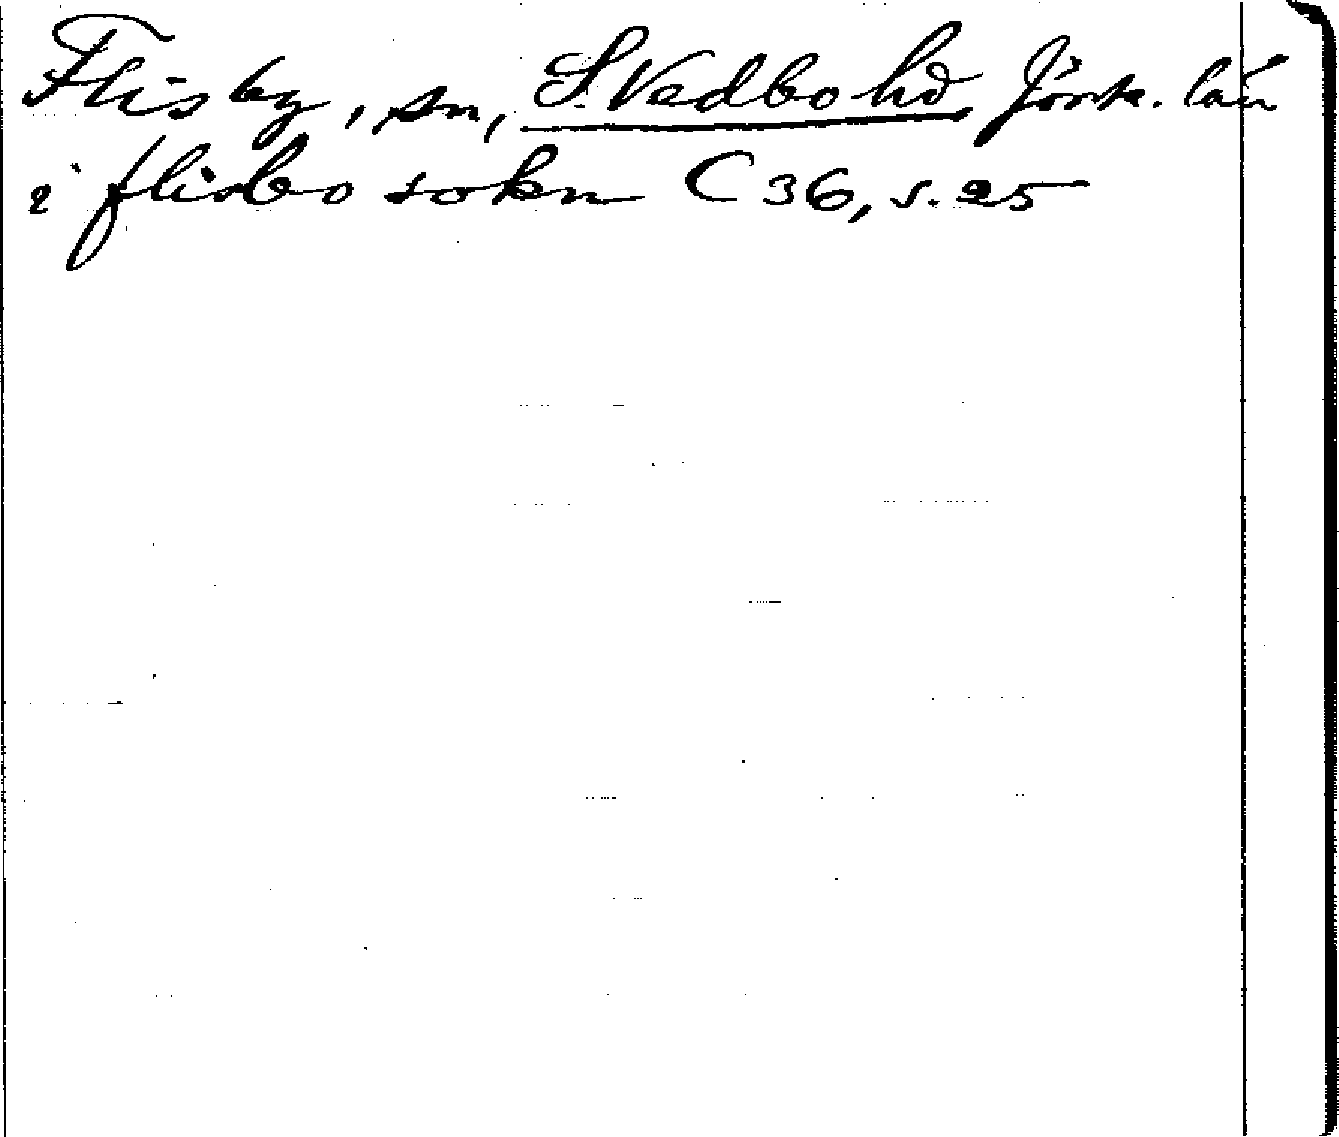 Flisby, sn, S. Vedbo hd, Jönk. län
i flisbo sokn C 36, s. 25